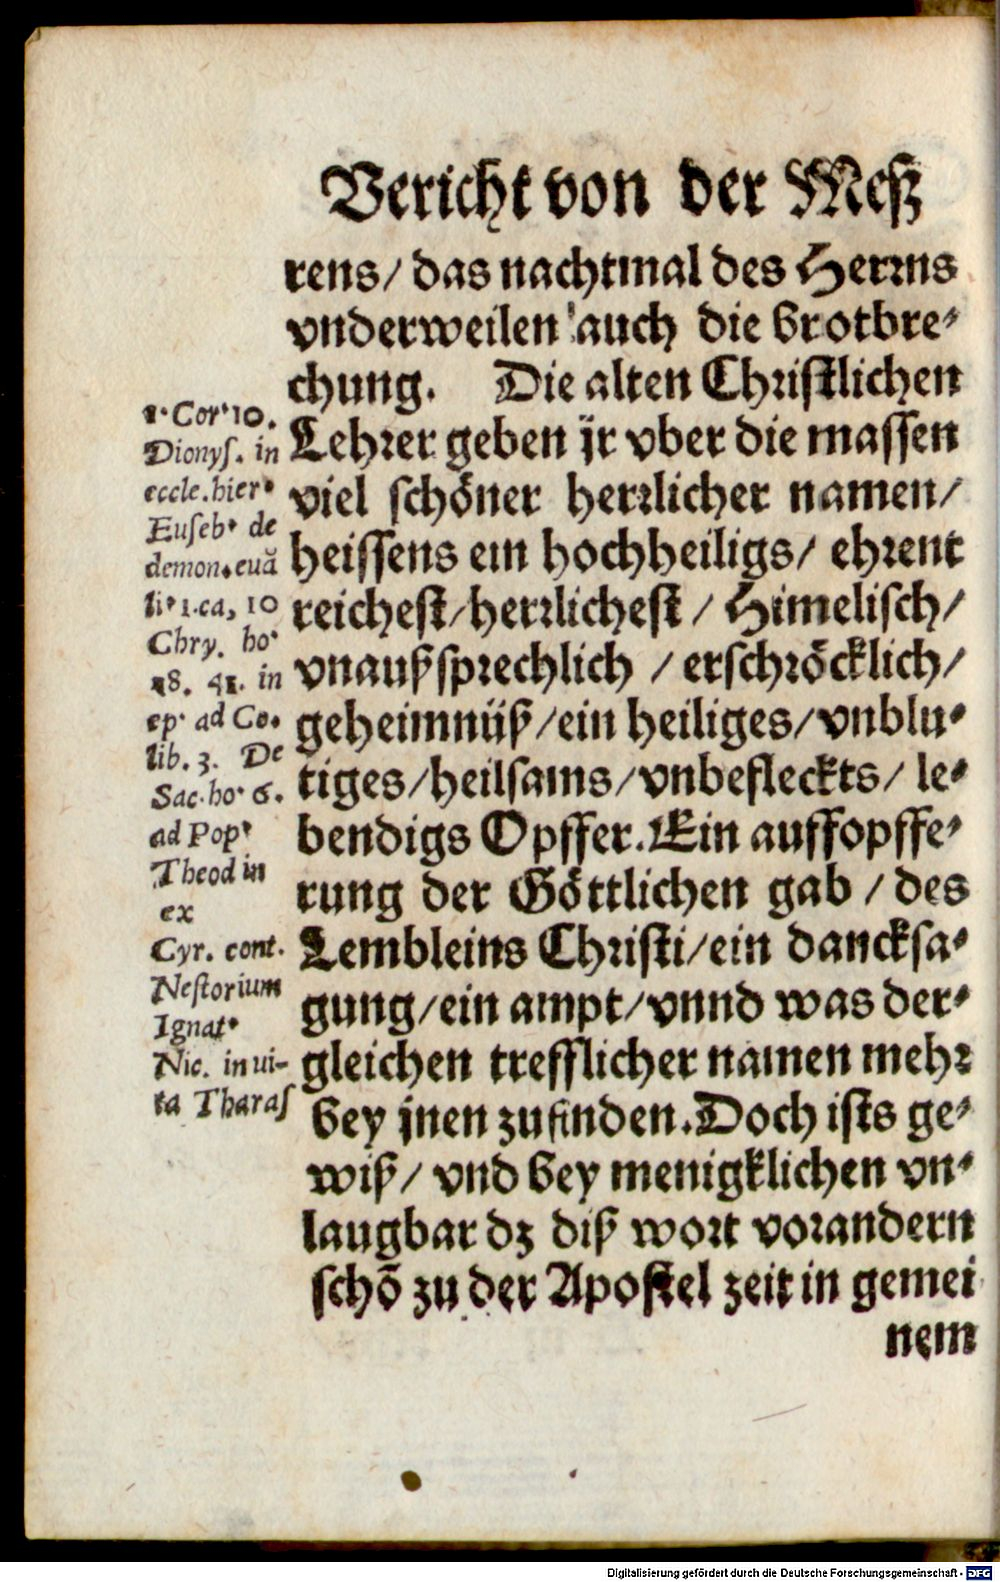 Bericht von der Meß
rens/ das nachtmal des Herrns
vnderweilen auch die brotbre-
chung. Die alten Christlichen
Lehrer geben jr vber die massen
viel schöner herrlicher namen/
heissens ein hochheiligs/ ehrent
reichest/herrlichest / Himelisch/
vnaußsprechlich / erschröcklich/
geheimnüß/ein heiliges/vnblu-
tiges/heilsams/vnbefleckts/ le-
bendigs Opffer. Ein auffopffe-
rung der Göttlichen gab / des
Lembleins Christi/ein dancksa-
gung/ein ampt/vnnd was der-
gleichen trefflicher namen mehr
bey jnen zufinden. Doch ists ge-
wiß/ vnd bey menigklichen vn-
laugbar dz diß wort vorandern
schõ zu der Apostel zeit in gemei
nem
1. Cor. 10.
Dionys. in
eccle. hier.
Euseb. de
demon. euã
li. 1. ca, 10
Chry. ho.
18. 41. in
ep. ad Co.
lib. 3. De
Sac. ho. 6.
ad Pop.
Theod in
ex
Cyr. cont.
Nestorium
Ignat.
Nic. in ui-
ta Tharas
Digitalisierung gefördert durch die Deutsche Forschungsgemeinschaft - DFG